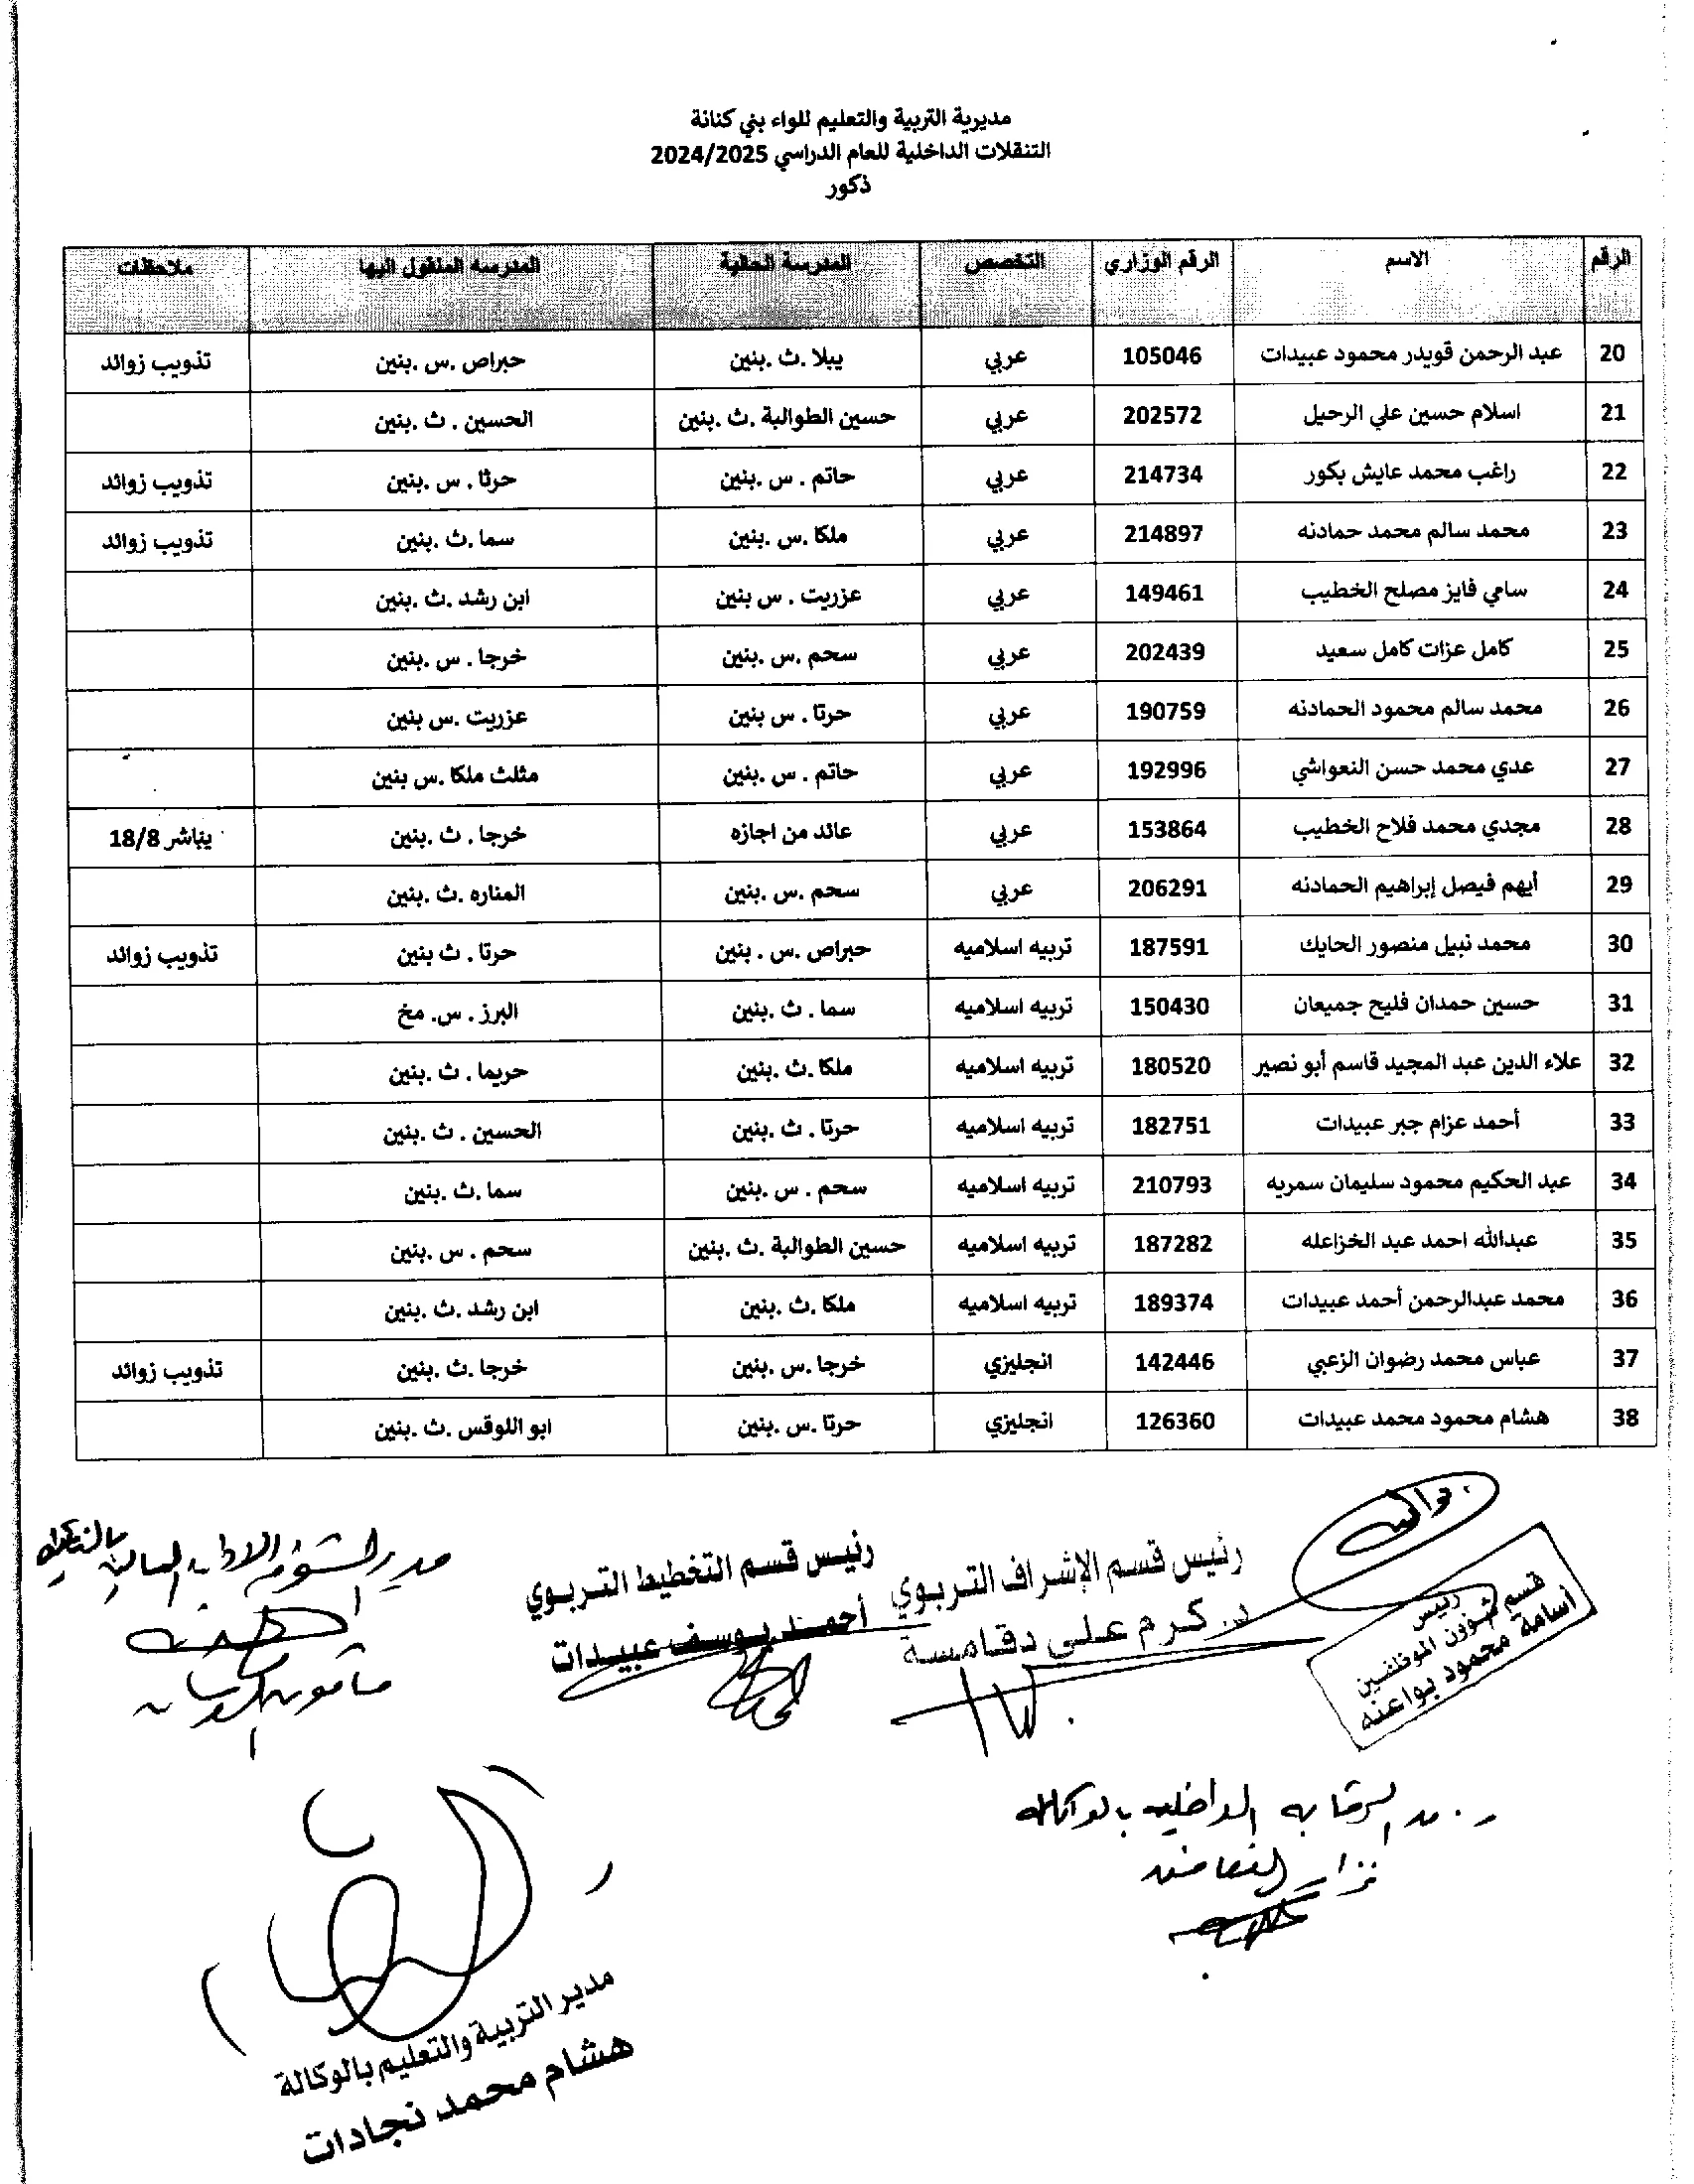 مديرية التربية والتعليم للواء بني كنانة
التنقلات الداخلية للعام الدراسي 2024/2025
ذكور
الرقم الاسم الرقم الوزاري التخصص المدرسة الحالية المدرسه المنقول اليها ملاحظات
20 عبد الرحمن قويدر محمود عبيدات 105046 عربي يبلا .ث .بنين حبراص .س .بنين تذويب زوائد
21 اسلام حسين علي الرحيل 202572 عربي حسين الطوالبة .ث .بنين الحسين . ث .بنين
22 راغب محمد عايش بكور 214734 عربي حاتم . س .بنين حرثا . س .بنين تذويب زوائد
23 محمد سالم محمد حمادنه 214897 عربي ملكا .س .بنين سما .ث .بنين تذويب زوائد
24 سامي فايز مصلح الخطيب 149461 عربي عزريت . س بنين ابن رشد .ث .بنين
25 كامل عزات كامل سعيد 202439 عربي سحم .س .بنين خرجا . س .بنين
26 محمد سالم محمود الحمادنه 190759 عربي حرتا . س بنين عزريت .س بنين
27 عدي محمد حسن النعواشي 192996 عربي حاتم . س .بنين مثلث ملكا .س بنين
28 مجدي محمد فلاح الخطيب 153864 عربي عائد من اجازه خرجا . ث .بنين يباشر 18/8
29 أيهم فيصل إبراهيم الحمادنه 206291 عربي سحم .س .بنين المناره .ث .بنين
30 محمد نبيل منصور الحايك 187591 تربيه اسلاميه حبراص .س . بنين حرتا . ث بنين تذويب زوائد
31 حسين حمدان فليح جميعان 150430 تربيه اسلاميه سما . ث .بنين البرز . س. مخ
32 علاء الدين عبد المجيد قاسم أبو نصير 180520 تربيه اسلاميه ملكا .ث .بنين حريما . ث .بنين
33 أحمد عزام جبر عبيدات 182751 تربيه اسلاميه حرتا . ث .بنين الحسين . ث .بنين
34 عبد الحكيم محمود سليمان سمريه 210793 تربيه اسلاميه سحم . س .بنين سما .ث .بنين
35 عبدالله احمد عبد الخزاعله 187282 تربيه اسلاميه حسين الطوالبة .ث .بنين سحم . س .بنين
36 محمد عبدالرحمن أحمد عبيدات 189374 تربيه اسلاميه ملكا .ث .بنين ابن رشد .ث .بنين
37 عباس محمد رضوان الزعبي 142446 انجليزي خرجا .س .بنين خرجا .ث .بنين تذويب زوائد
38 هشام محمود محمد عبيدات 126360 انجليزي حرتا .س .بنين ابو اللوقس .ث .بنين
رئيس
قسم شؤون الموظفين
أسامة محمود بواعنه
رئيس قسم الإشراف التربوي
د. كرم علي دقامسة
رئيس قسم التخطيط التربوي
أحمد يوسف عبيدات
مدير الشؤون الادارية المالية بالوكالة
مأمون
الرقابه الداخليه بالوكاله
نزار
مدير التربية والتعليم بالوكالة
هشام محمد نجادات